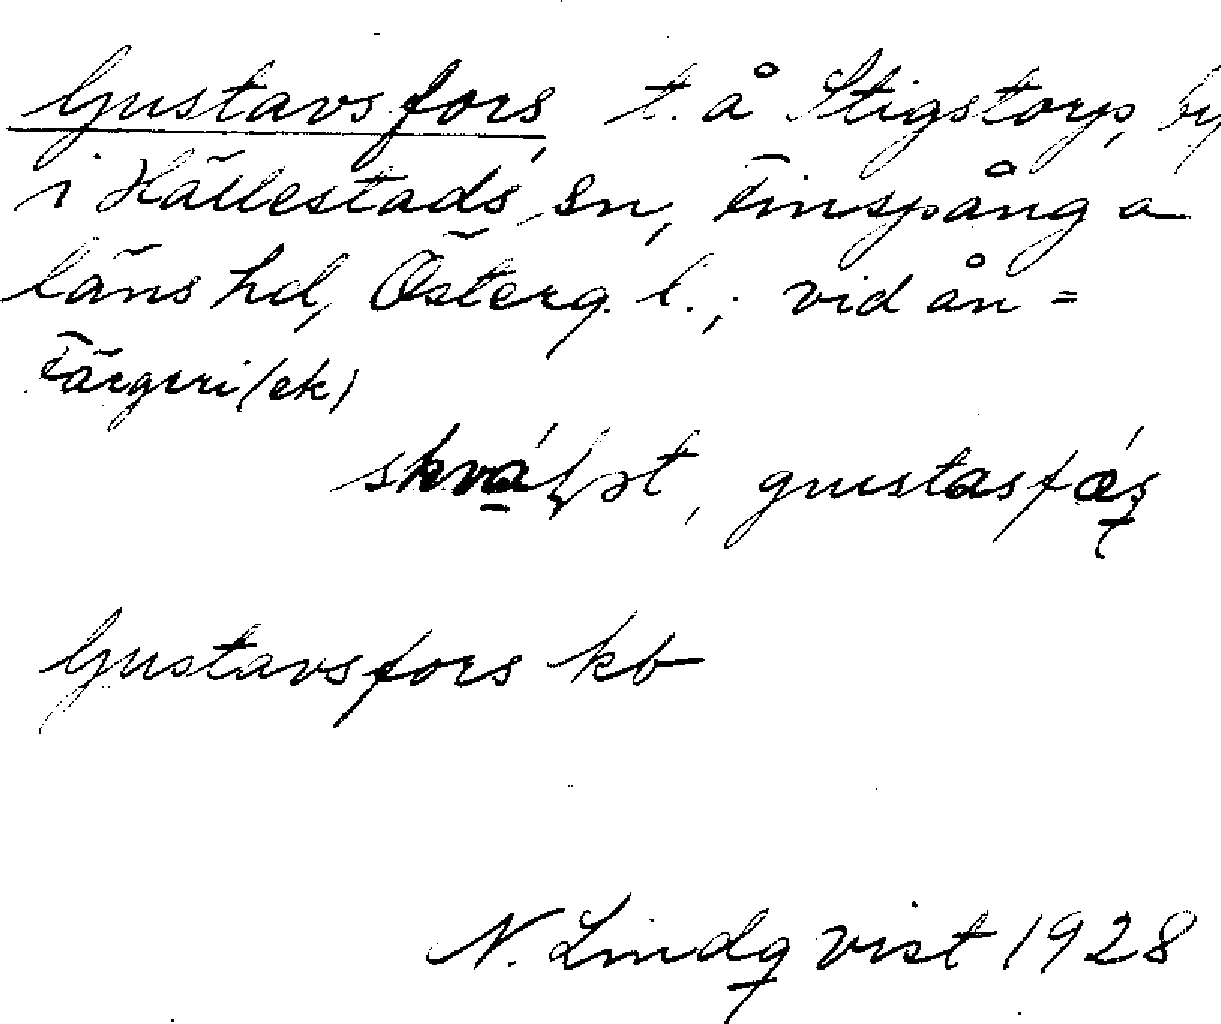 Gustavsfors, t. å Stigstorp, by
i Hällestads sn, Finspånga
läns hd, Österg. l.; vid ån =
Färgeri (ek)
gustasfos
Gustavsfors kb
N. Lindqvist 1928